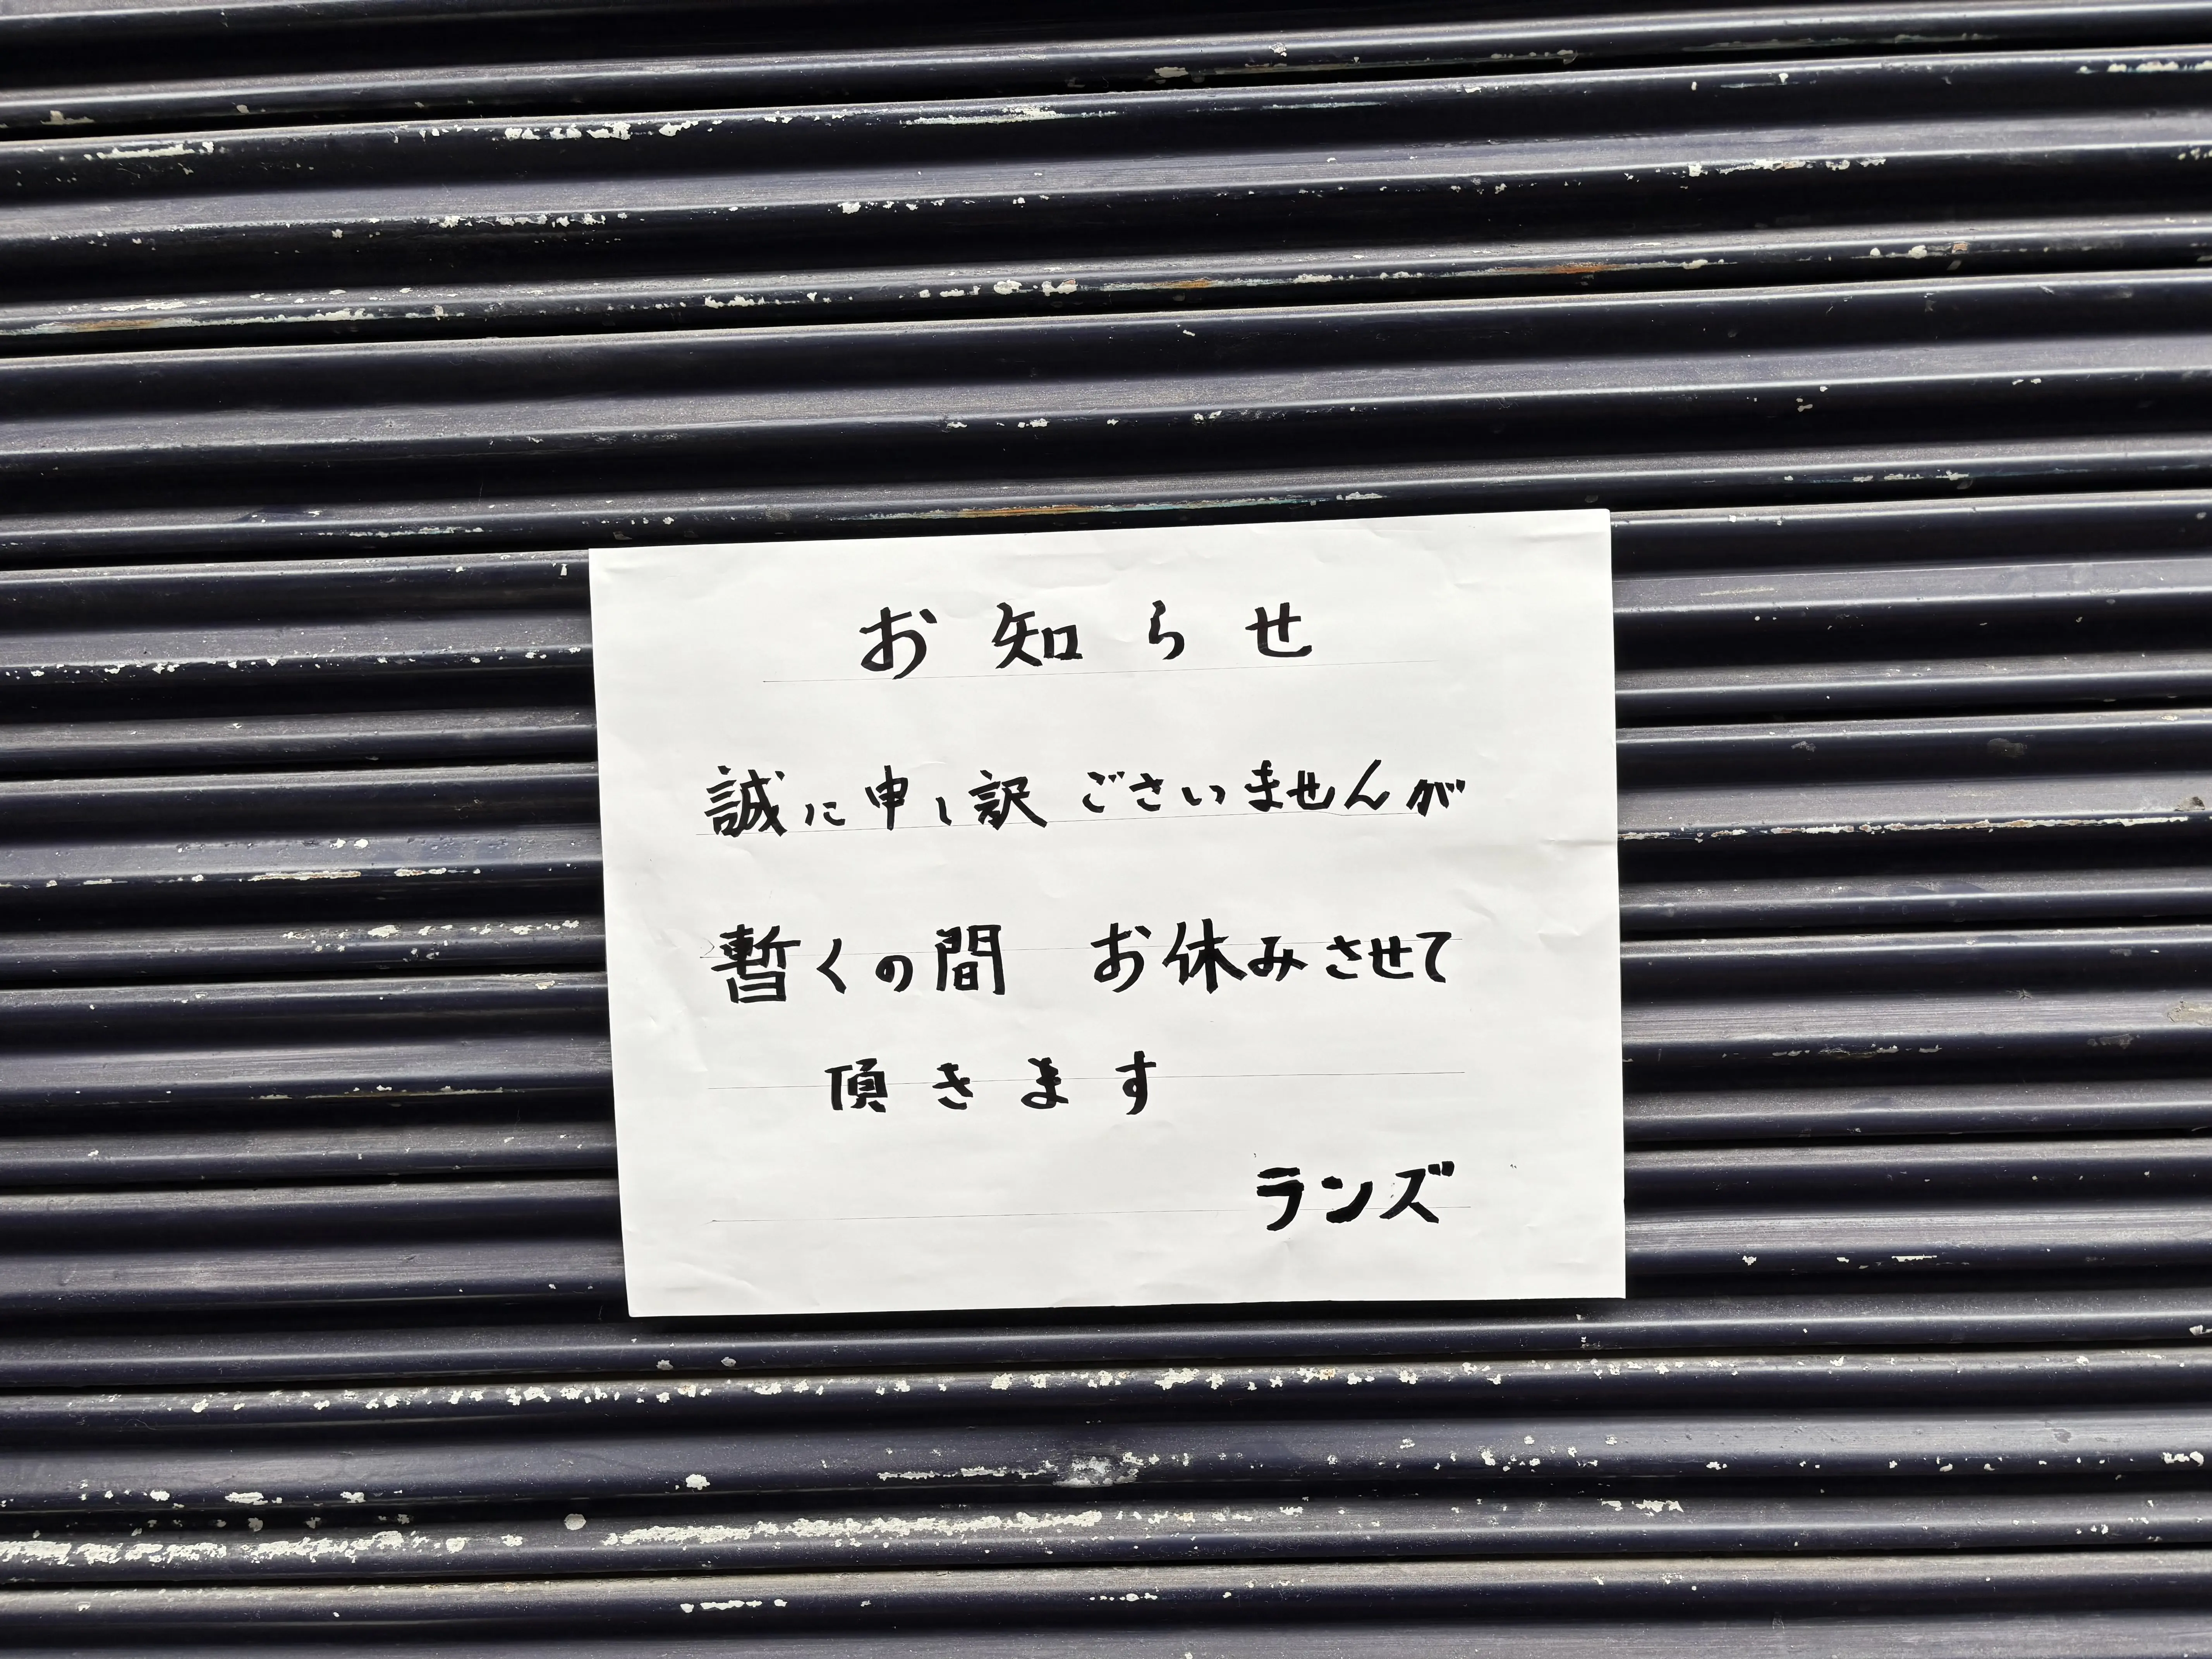 お知らせ
誠に申し訳ごさいませんが
暫くの間　お休みさせて
頂きます
ランズ